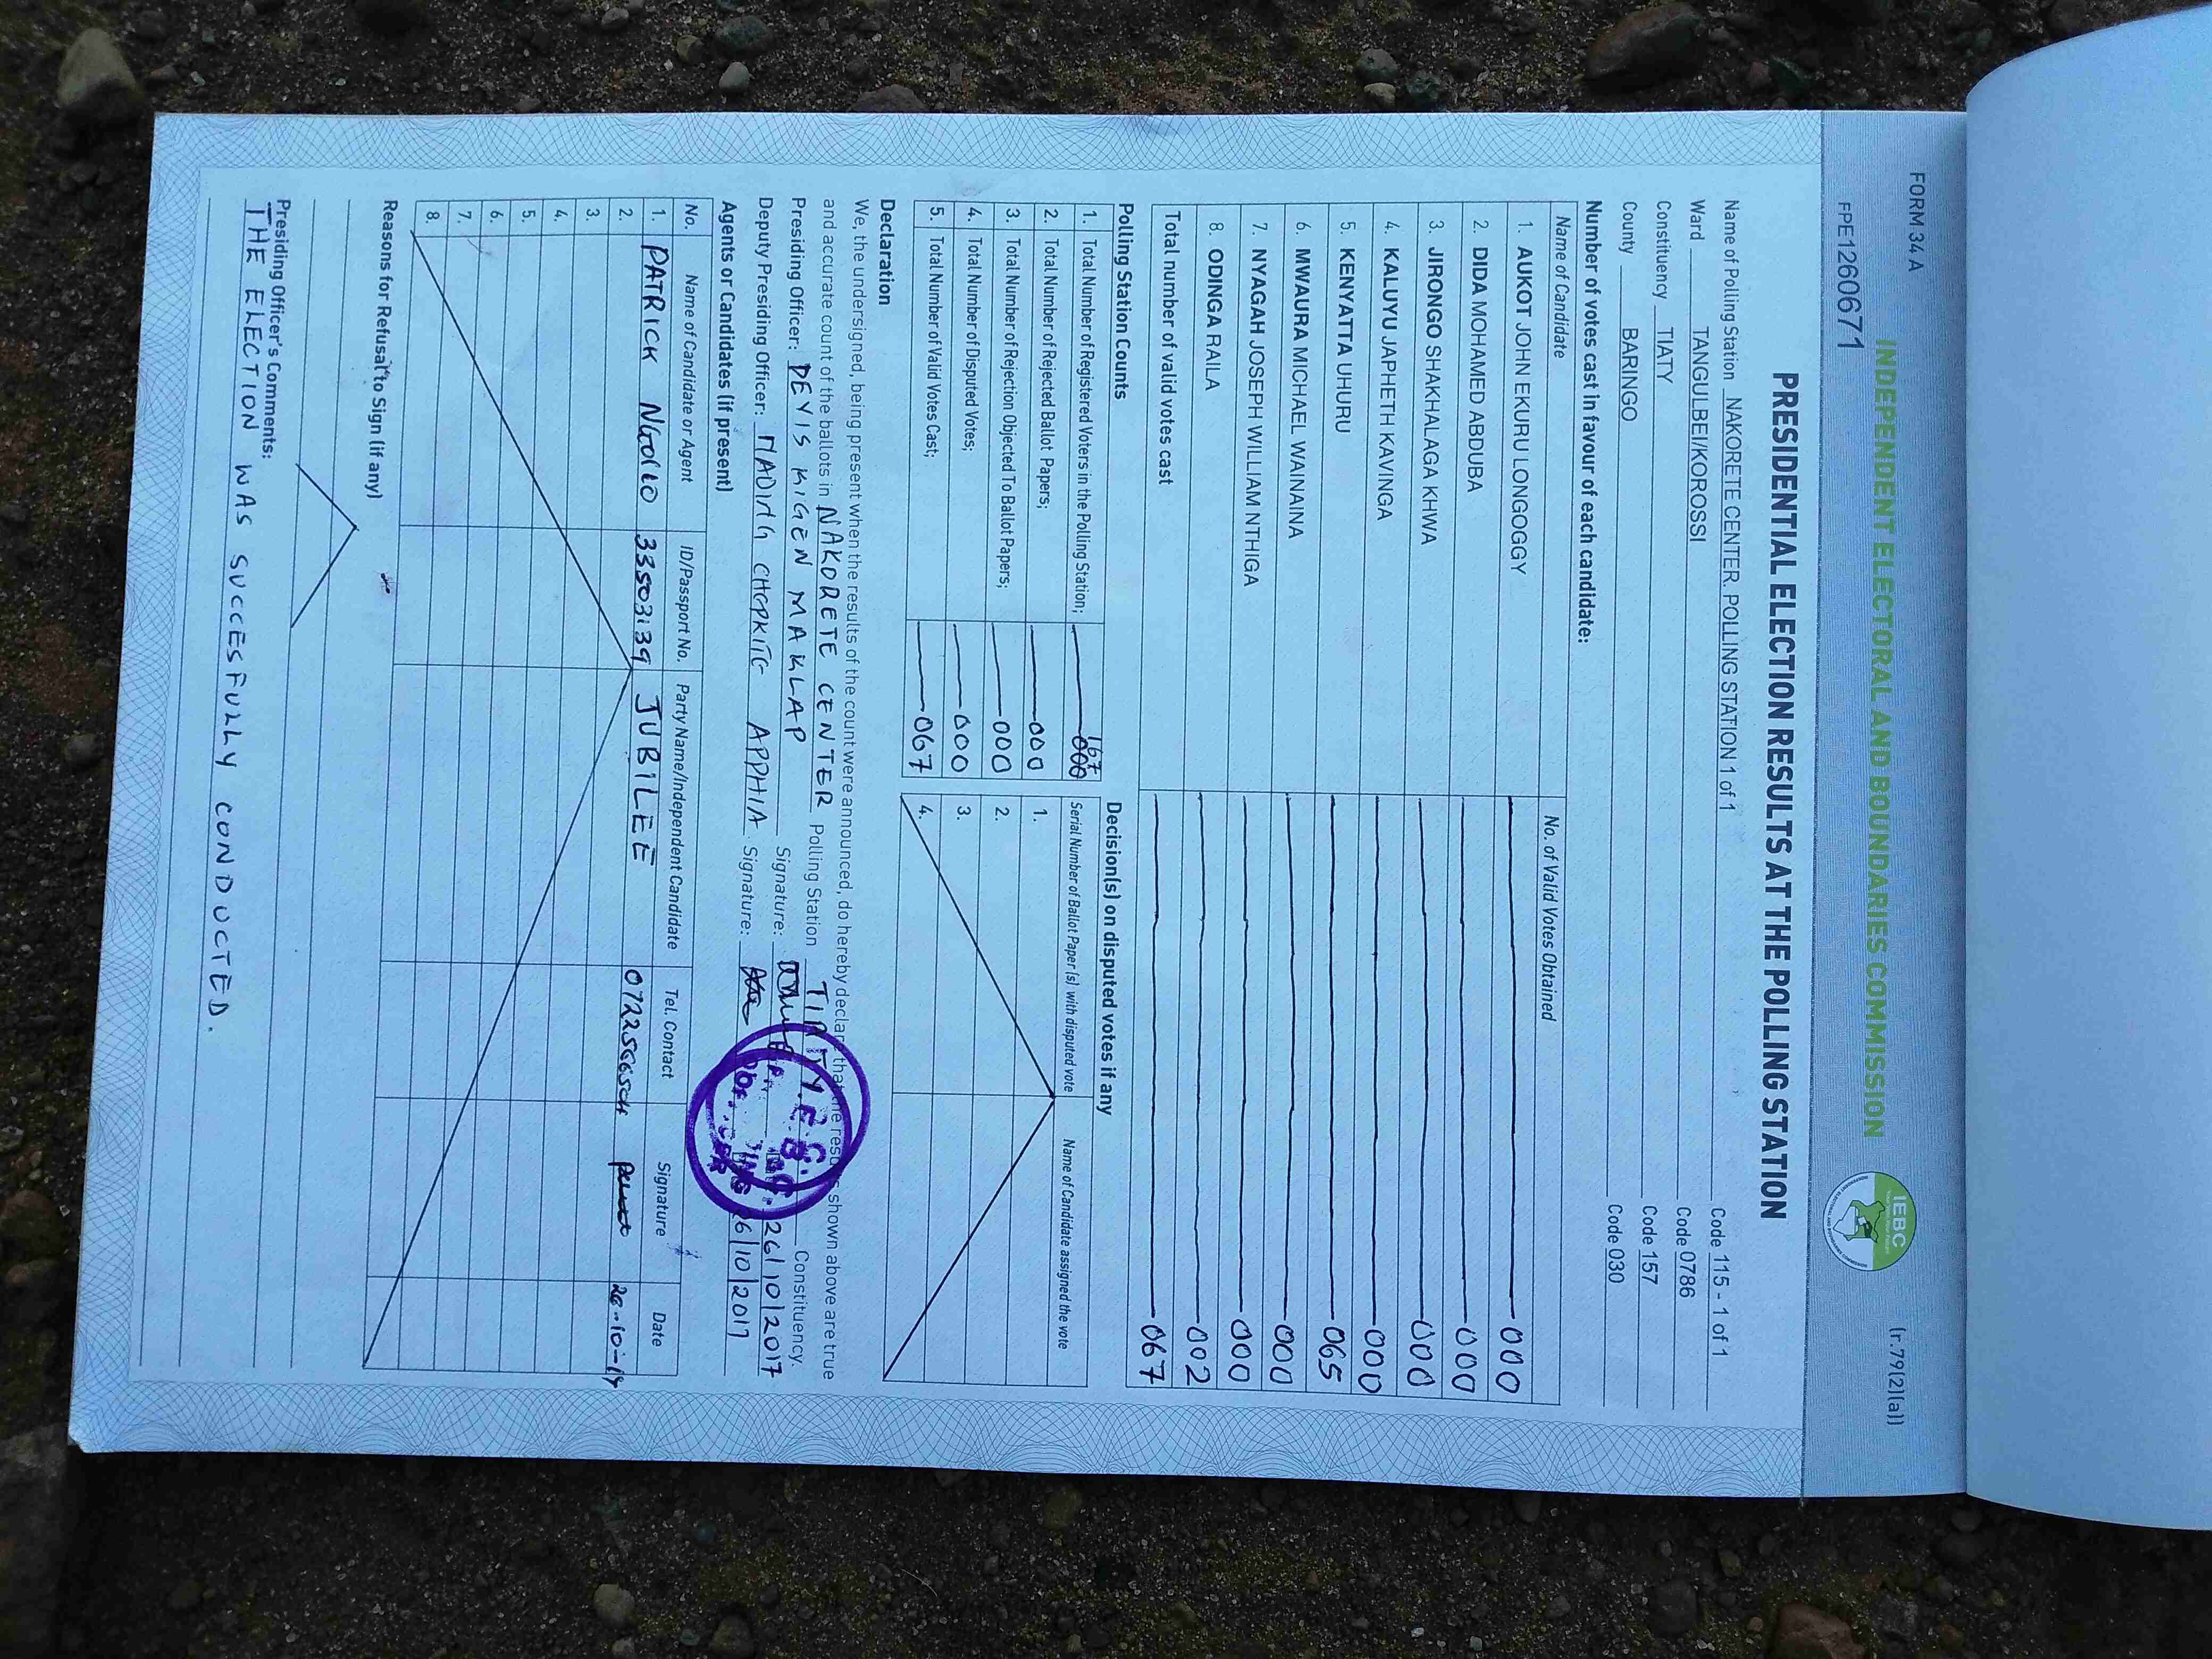 FORM 34 A
(r.79(2)(a))
INDEPENDENT ELECTORAL AND BOUNDARIES COMMISSION
IEBC
FPE1260671
PRESIDENTIAL ELECTION RESULTS AT THE POLLING STATION
Name of Polling Station NAKORETE CENTER. POLLING STATION 1 of 1 Code 115 - 1 of 1
Ward TANGULBEI/KOROSSI Code 0786
Constituency TIATY Code 157
County BARINGO Code 030
Number of votes cast in favour of each candidate:
Name of Candidate No. of Valid Votes Obtained
1. AUKOT JOHN EKURU LONGOGGY 000
2. DIDA MOHAMED ABDUBA 000
3. JIRONGO SHAKHALAGA KHWA 000
4. KALUYU JAPHETH KAVINGA 000
5. KENYATTA UHURU 065
6. MWAURA MICHAEL WAINAINA 000
7. NYAGAH JOSEPH WILLIAM NTHIGA 000
8. ODINGA RAILA 002
Total number of valid votes cast 067
Polling Station Counts
1. Total Number of Registered Voters in the Polling Station; 167
2. Total Number of Rejected Ballot Papers; 000
3. Total Number of Rejection Objected To Ballot Papers; 000
4. Total Number of Disputed Votes; 000
5. Total Number of Valid Votes Cast; 067
Decision(s) on disputed votes if any
Serial Number of Ballot Paper (s) with disputed vote Name of Candidate assigned the vote
1.
2.
3.
4.
Declaration
We, the undersigned, being present when the results of the count were announced, do hereby declare that the results shown above are true
and accurate count of the ballots in NAKORETE CENTER Polling Station TIATY Constituency.
Presiding Officer: DEVIS KIGEN MAKLAP Signature: 26/10/2017
Deputy Presiding Officer: APPHIA Signature: 26/10/2017
Agents or Candidates (if present)
No. Name of Candidate or Agent ID/Passport No. Party Name/Independent Candidate Tel. Contact Signature Date
1. PATRICK 33503139 JUBILEE
2.
3.
4.
5.
6.
7.
8.
Reasons for Refusal to Sign (if any)
Presiding Officer's Comments:
THE ELECTION WAS SUCCESFULLY CONDUCTED.